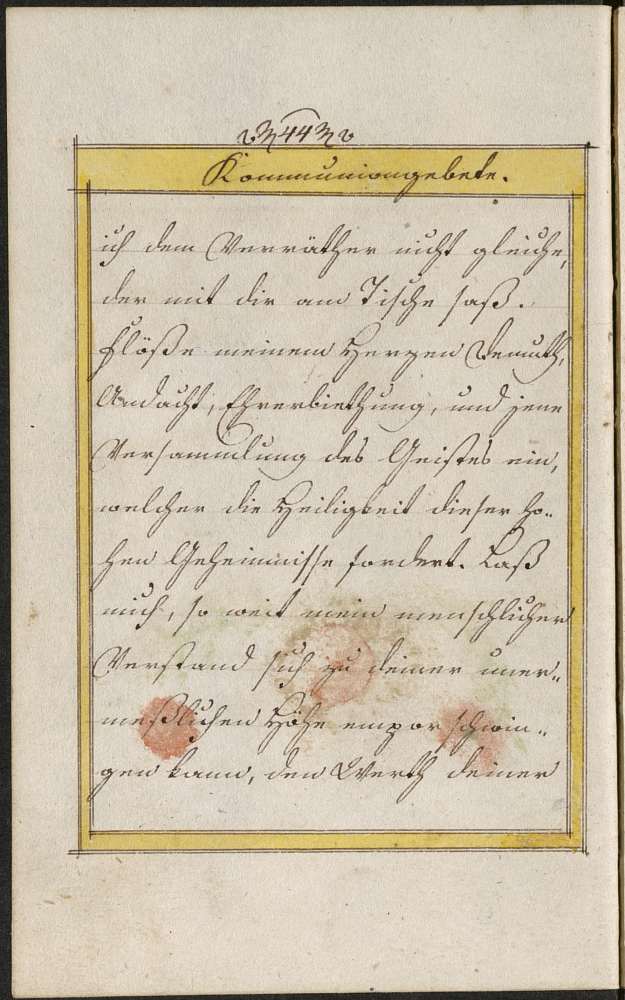 44
Kommuniongebete.
ich dem Verräther nicht gleiche,
der mit dir am Tische saß.
Flöße meinem Herzen Demuth,
Andacht, Ehrerbiethung, und jene
Versammlung des Geistes ein,
welcher die Heiligkeit dieser ho„
hen Geheimnisse fordert. Laß
mich, so weit mein menschlicher
Verstand sich zu deiner uner„
meßlichen Höhe empor schwin„
gen kann, den Werth deiner